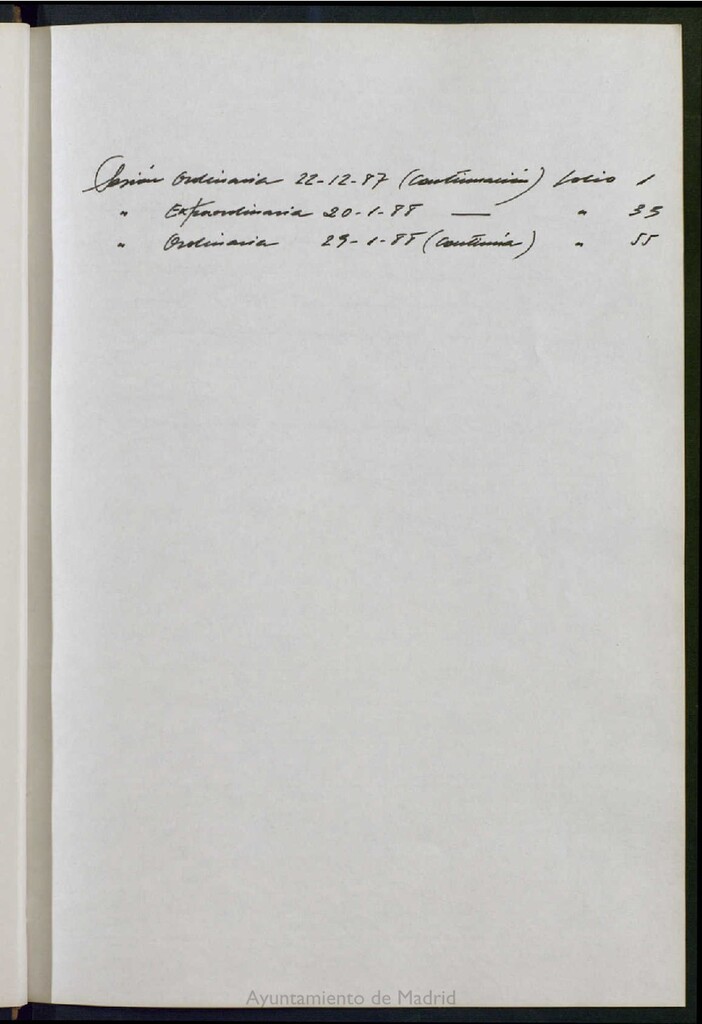 Sesión Ordinaria 22-12-87 (Continuación) folio 1
" Extraordinaria 20-1-88 — " 39
" Ordinaria 29-1-88 (Continúa) " 55
Ayuntamiento de Madrid